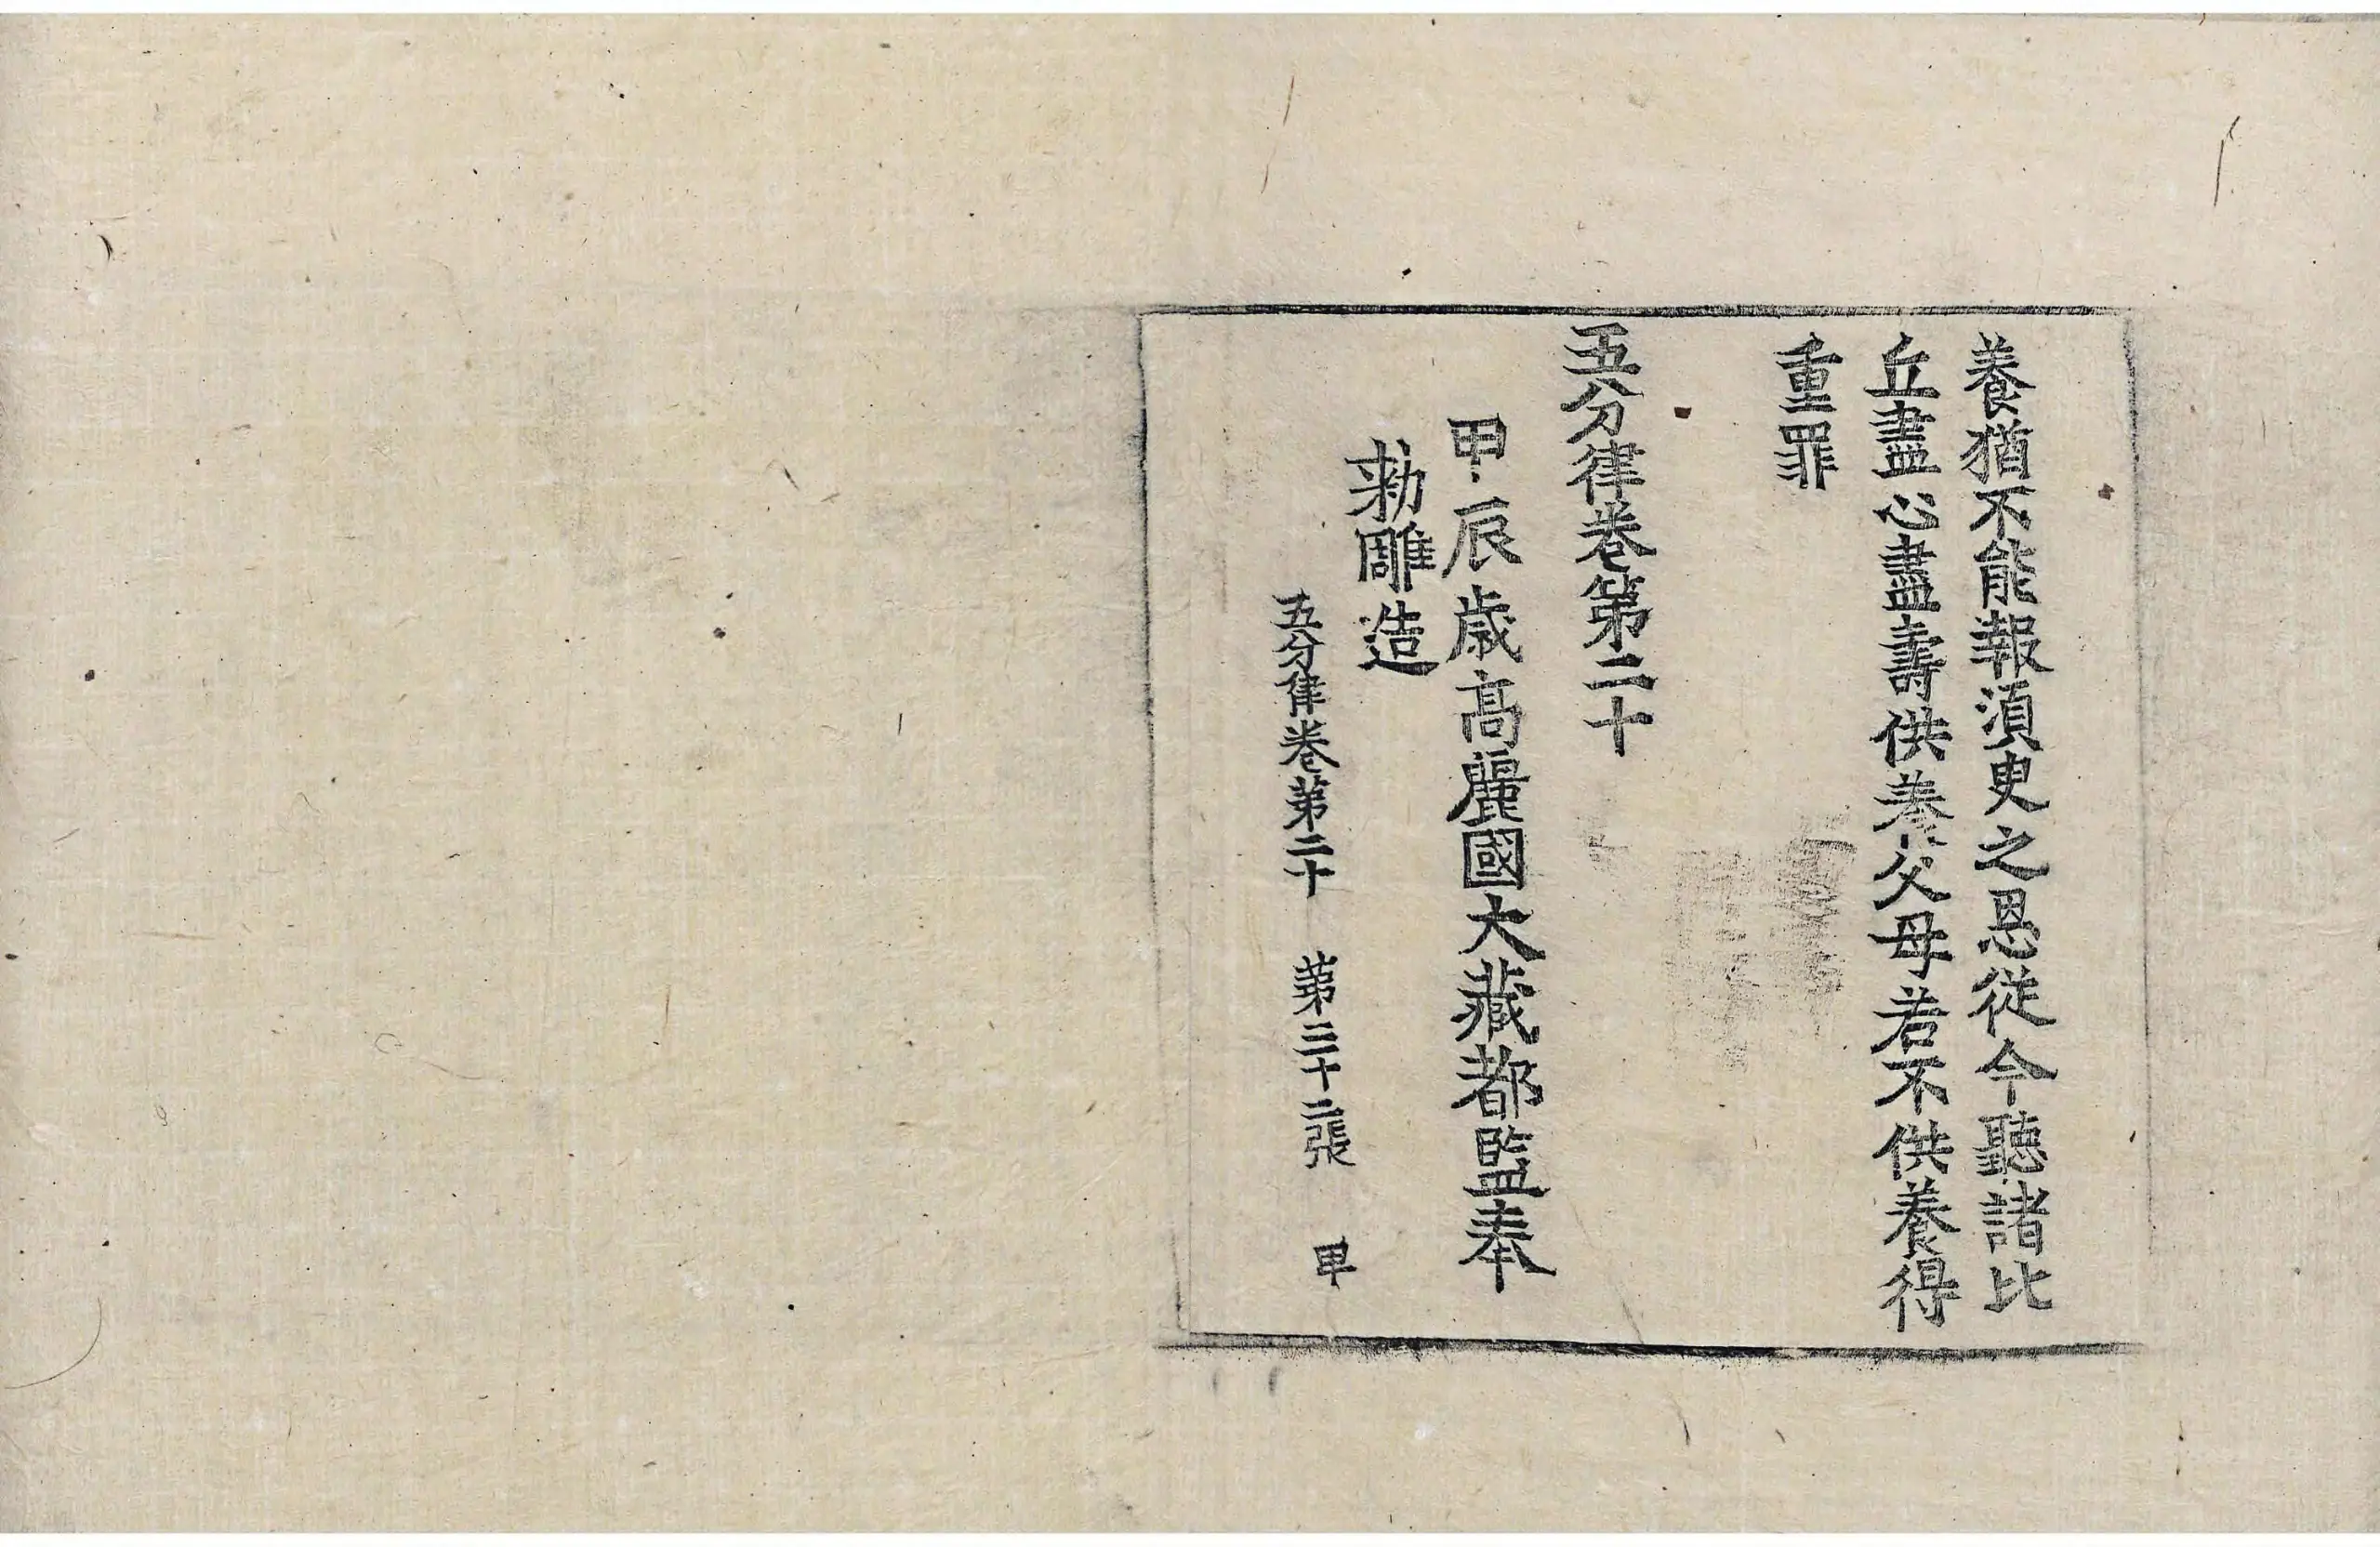 養猶不能報湏臾之恩從今聽諸比
丘盡心盡壽供養父母若不供養得
重罪
五分律卷第二十
甲辰歳高麗國大藏都監奉
勑雕造
五分律卷第二十 第三十二張 甲